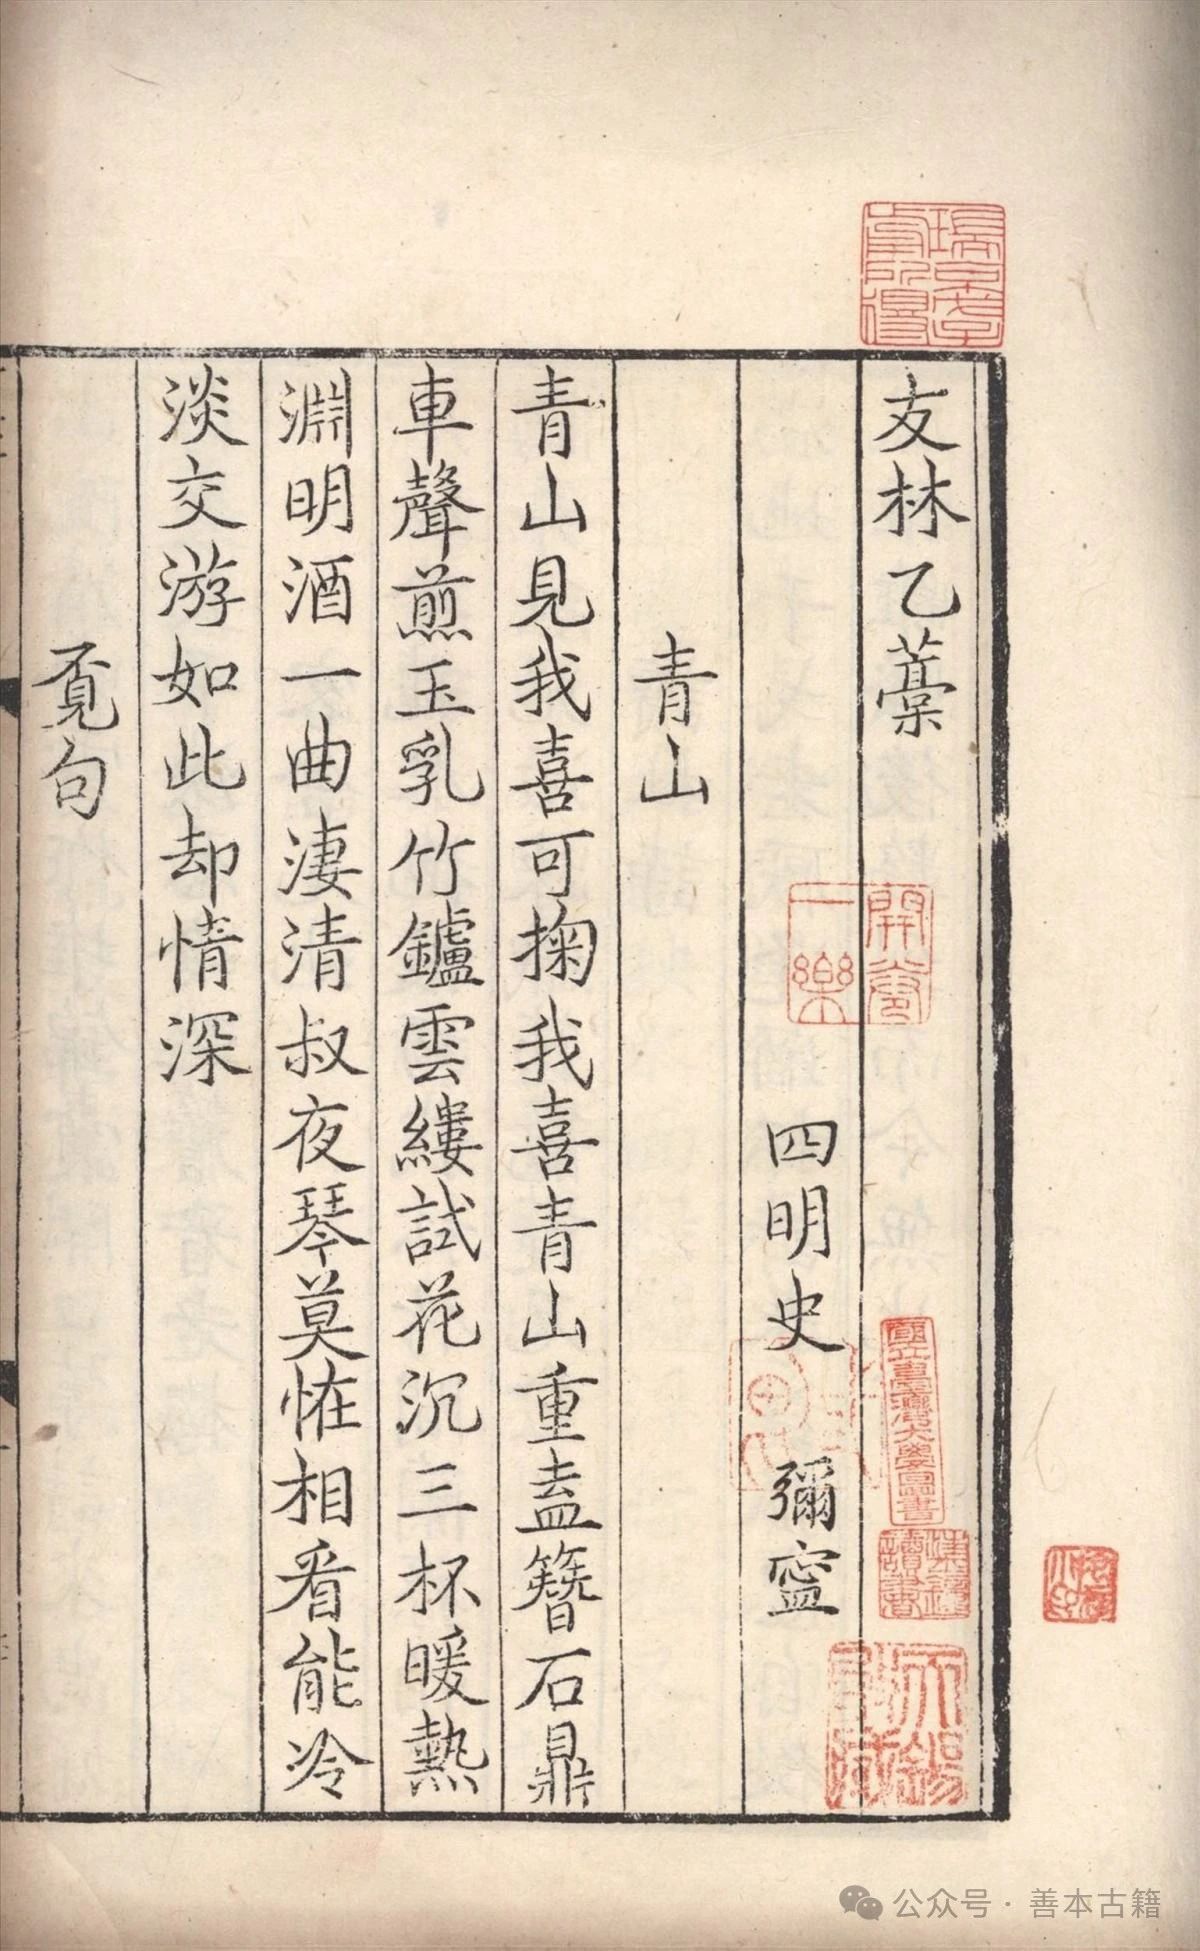 友林乙藁
四明史　彌寧
青山
青山見我喜可掬我喜青山重盍簪石鼎
車聲煎玉乳竹鑪雲縷試花沉三杯暖熱
淵明酒一曲淒清叔夜琴莫恠相看能冷
淡交游如此却情深
覔句
開卷一樂
國立臺灣大學圖書
公众号 · 善本古籍